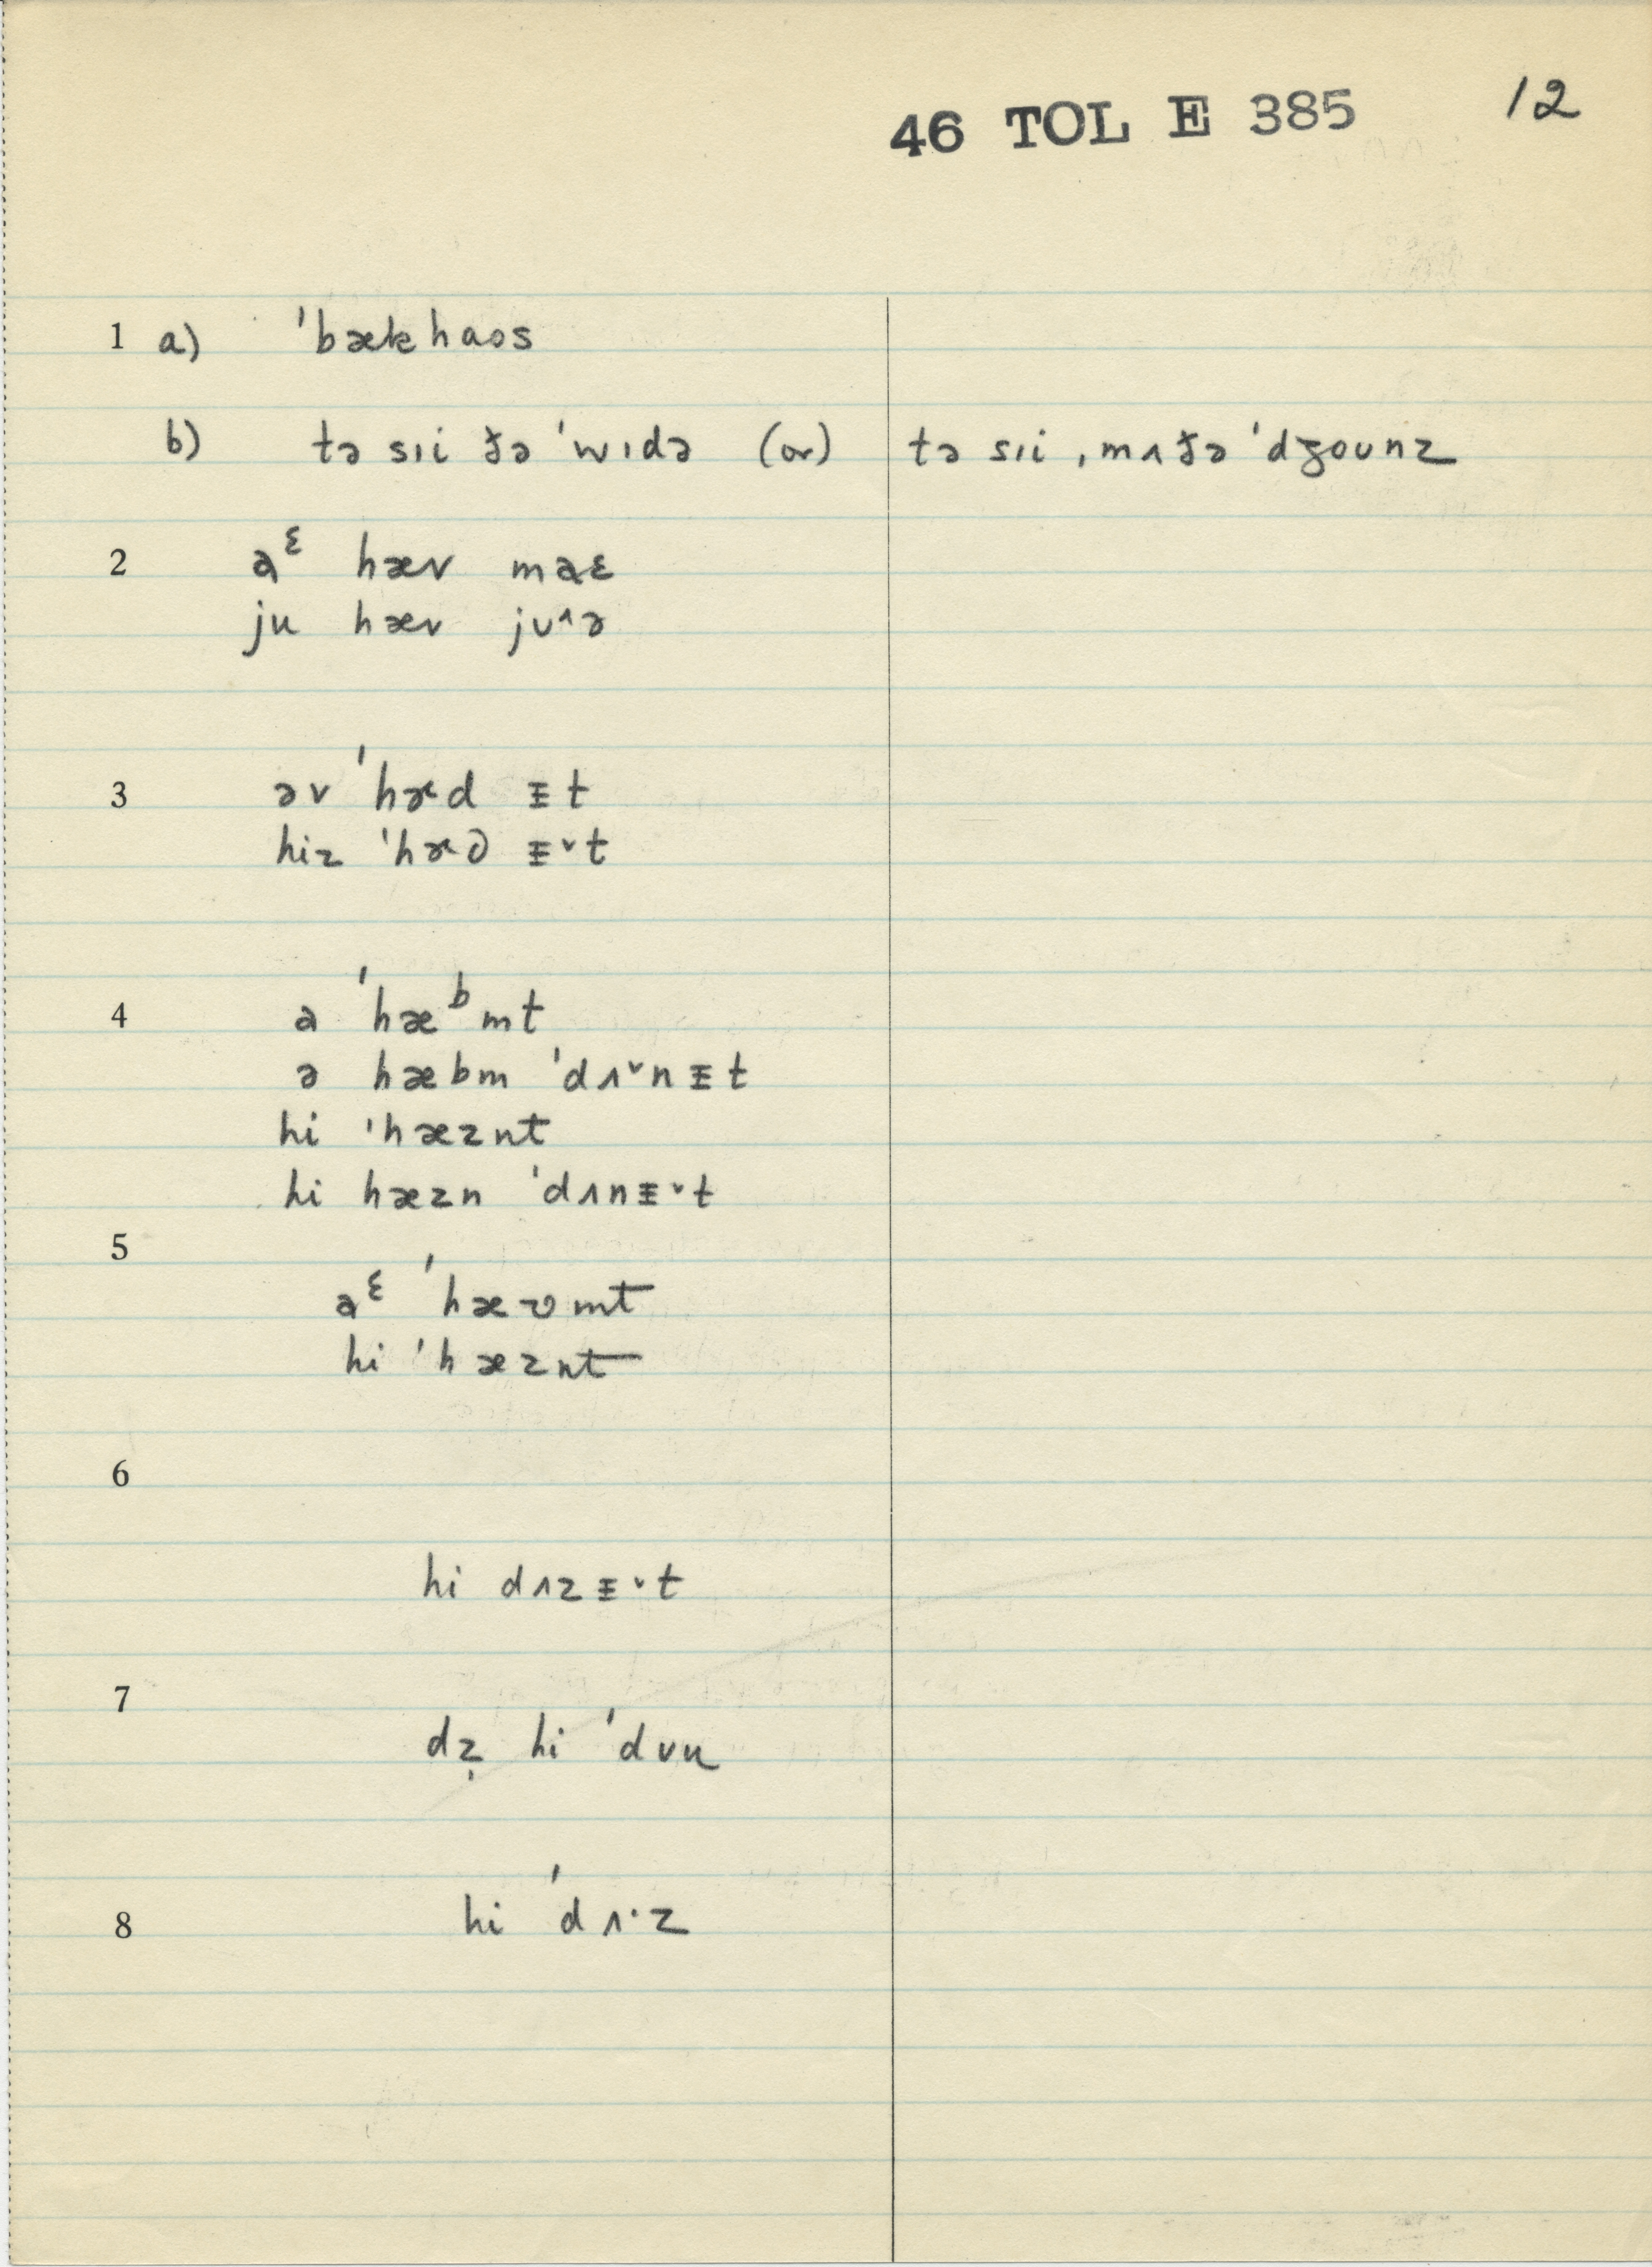 46 TOL E 385 12
1 a) ˈbækhaos
b) tə sɪi ðə ˈwɪdə (or) tə sɪi ˌmʌðə ˈdʒounz
2 aᵋ hæv maɛ
ju hæv jʊ˄ə
3 əv ˈhæd ᵻt
hiz ˈhæd̬ ᵻ˅t
4 a ˈhæᵇmt
ə hæbm ˈdʌ˅nᵻt
hi ˈhæznt
hi hæzn ˈdʌnᵻ˅t
5
aᵋ ˈhæʋmt
hi ˈhæznt
6
hi dʌzᵻ˅t
7
dẓ hi ˈdʊu
8 hi ˈdʌ·z